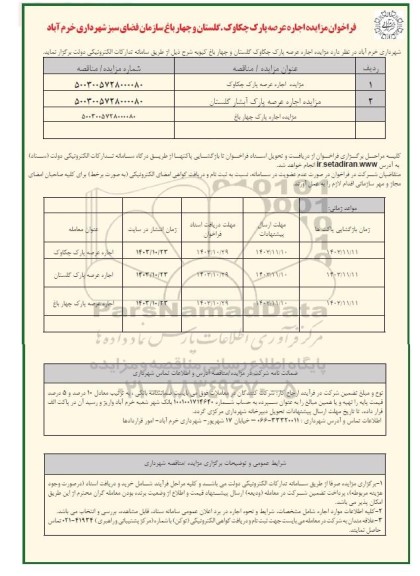 فراخوان مزایده اجاره عرصه پارک چکاوک، گلستان و چهار باغ سازمان فضای سبز شهرداری خرم آباد
شهرداری خرم آباد در نظر دارد مزایده اجاره عرصه پارک چکاوک گلستان و چهار باغ کیویه شرح ذیل از طریق سامانه تدارکات الکترونیکی دولت برگزار نماید.
ردیف عنوان مزایده / مناقصه شماره مزایده/ مناقصه
۱ مزایده اجاره عرصه پارک چکاوک
۲ مزایده اجاره عرصه پارک آبشار گلستان
مزایده اجاره عرصه پارک چهار باغ
کلیه مراحل برگزاری فراخوان از دریافت و تحویل اسناد فراخوان تا بازگشایی پاکتها از طریق درگاه سامانه تدارکات الکترونیکی دولت (ستاد)
به آدرس ir.setadiran.www انجام خواهد شد.
متقاضیان شرکت در فراخوان در صورت عدم عضویت در سامانه، نسبت به ثبت نام و دریافت گواهی امضای الکترونیکی (به صورت برخط) برای کلیه صاحبان امضای
مجاز و مهر سازمانی اقدام لازم را به عمل آورند.
مواعد زمانی:
زمان بازگشایی پاکت ها مهلت ارسال پیشنهادات مهلت دریافت اسناد فراخوان زمان انتشار در سایت عنوان معامله
۱۴۰۳/۱۱/۱۱ ۱۴۰۳/۱۱/۱۰ ۱۴۰۳/۱۰/۲۹ ۱۴۰۳/۱۰/۲۳ اجاره عرصه پارک چکاوک
۱۴۰۳/۱۱/۱۱ ۱۴۰۳/۱۱/۱۰ ۱۴۰۳/۱۰/۲۹ ۱۴۰۳/۱۰/۲۳ اجاره عرصه پارک گلستان
۱۴۰۳/۱۱/۱۱ ۱۴۰۳/۱۱/۱۰ ۱۴۰۳/۱۰/۲۹ ۱۴۰۳/۱۰/۲۳ اجاره عرصه پارک چهار باغ
ParsNamadData
مرکز آوری اطلاعات پارس نماد داده ها
پایگاه اطلاع رسانی مناقصه و مزایده
ضمانت نامه شرکت در مزایده /مناقصه آدرس و اطلاعات تماس شهرداری
نوع و مبلغ تضمین شرکت در فرآیند ارجاع کار: شرکت کنندگان در معاملات فوق می بایست ضمانتنامه بانکی، به ترتیب معادل ۱۰ درصد و ۵ درصد
قیمت پایه را تهیه و یا همین مبلغ را به عنوان سپرده به حساب شماره بانک شهر شعبه خرم آباد واریز و رسید آن در پاکت الف
قرار داده، تا تاریخ مهلت ارسال پیشنهادات تحویل دبیرخانه شهرداری مرکزی گردد.
اطلاعات تماس و آدرس شهرداری : ۳۳۲۲۰۰۱۱-۰۶۶ – خیابان ۱۷ شهریور- شهرداری خرم آباد- امور قراردادها
شرایط عمومی و توضیحات برگزاری مزایده /مناقصه شهرداری
۱-برگزاری مزایده صرفا از طریق سامانه تدارکات الکترونیکی دولت می باشند و کلیه مراحل فرآیند شامل خرید و دریافت اسناد (درصورت وجود
هزینه مربوطه)، پرداخت تضمین شرکت در معامله (ودیعه) ارسال پیشنهاد قیمت و اطلاع از وضعیت برنده بودن معامله گران محترم از این طریق
امکان پذیر می باشد.
۲-کلیه اطلاعات موارد اجاره شامل مشخصات، شرایط و نحوه اجاره در برد اعلان عمومی سامانه ستاد، قابل مشاهده، بررسی و انتخاب می باشد.
۳-علاقه مندان به شرکت در معامله می بایست جهت ثبت نام و دریافت گواهی الکترونیکی (توکن) با شماره (مرکز پشتیبانی و راهبری) ۴۱۹۳۴-۰۲۱ تماس
حاصل نمایند.